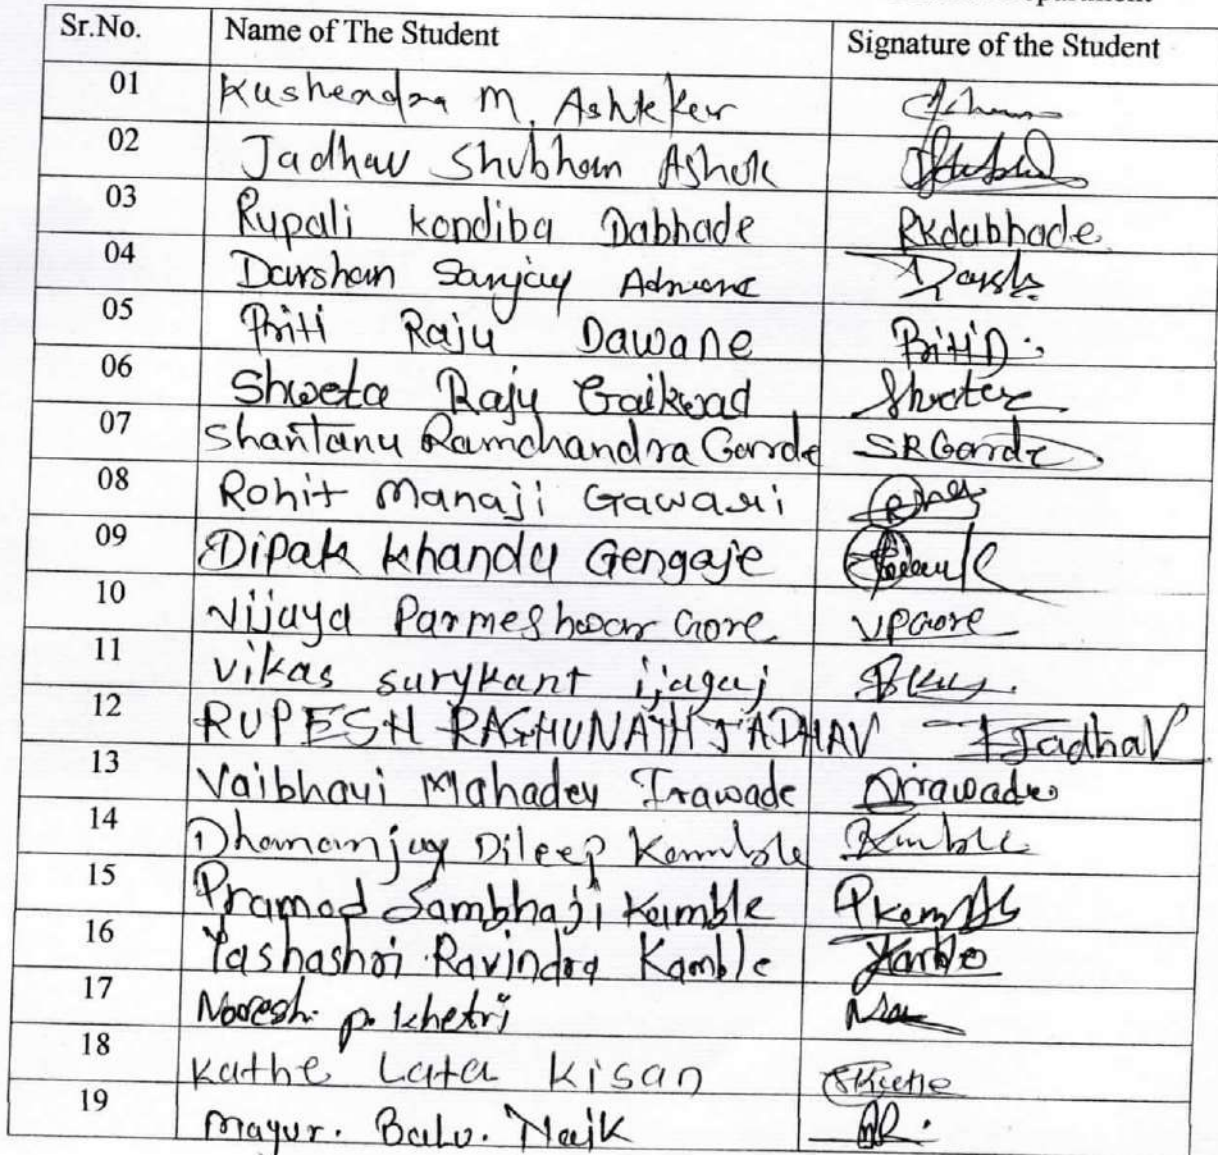 Sr.No. Name of The Student Signature of the Student
01 Kushendra M. Ashtekar
02 Jadhav Shubham Ashok
03 Rupali kondiba Dabhade RKdabhade
04 Darshan Sanjay Darsh
05 Priti Raju Dawane Priti D.
06 Shweta Raju Gaikwad Shweta
07 Shantanu Ramchandra Garde SRGarde
08 Rohit Manaji Gawari
09 Dipak khandu Gengaje
10 Vijaya Parmeshwar Gore VPGore
11 Vikas surykant ijagaj
12 RUPESH RAGHUNATH JADHAV Jadhav
13 Vaibhavi Mahadev Irawade
14 Dhananjay Dileep Kamble Kamble
15 Pramod Sambhaji Kamble
16 Yashashri Ravindra Kamble
17 Naresh. p. khetri
18 Kathe Lata Kisan
19 Mayur. Balu. Naik